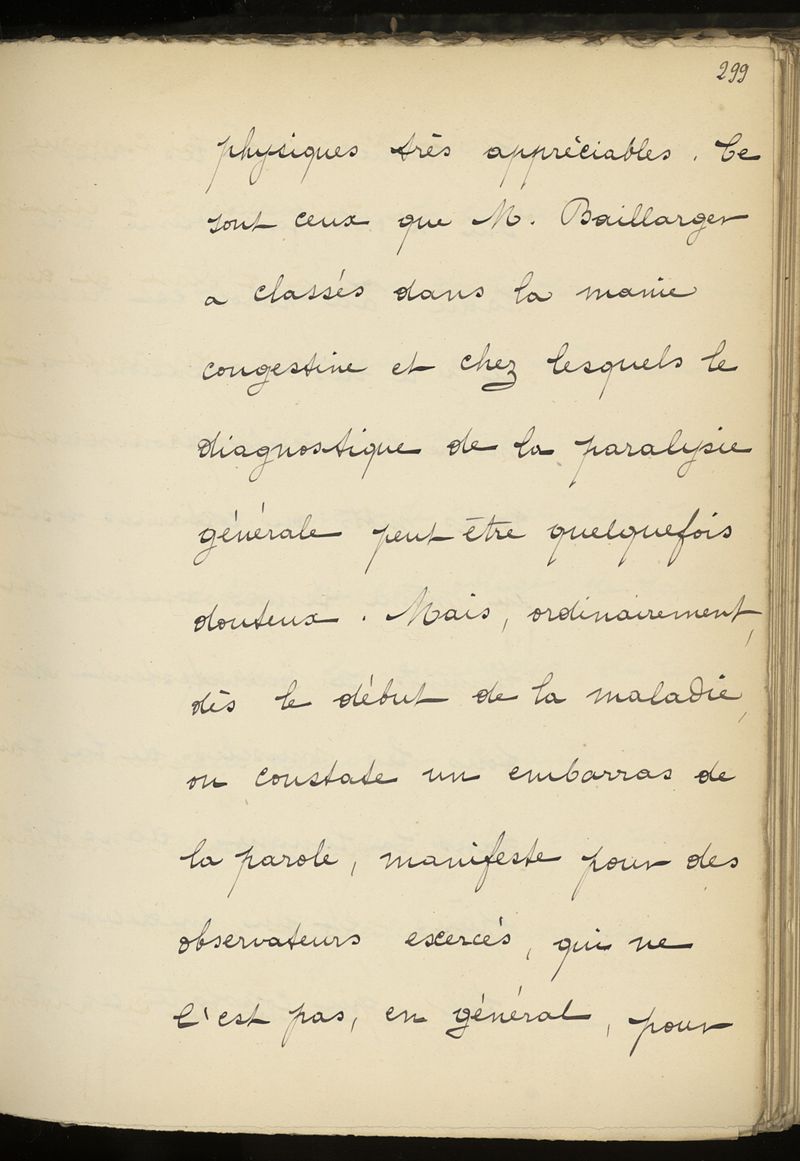 299
physiques très appréciables. Ce
sont ceux que M. Baillarger
a classés dans la manie
congestive et chez lesquels le
diagnostique de la paralysie
générale peut être quelquefois
douteux. Mais, ordinairement,
dès le début de la maladie,
on constate un embarras de
la parole, manifeste pour des
observateurs exercés, qui ne
l'est pas, en général, pour